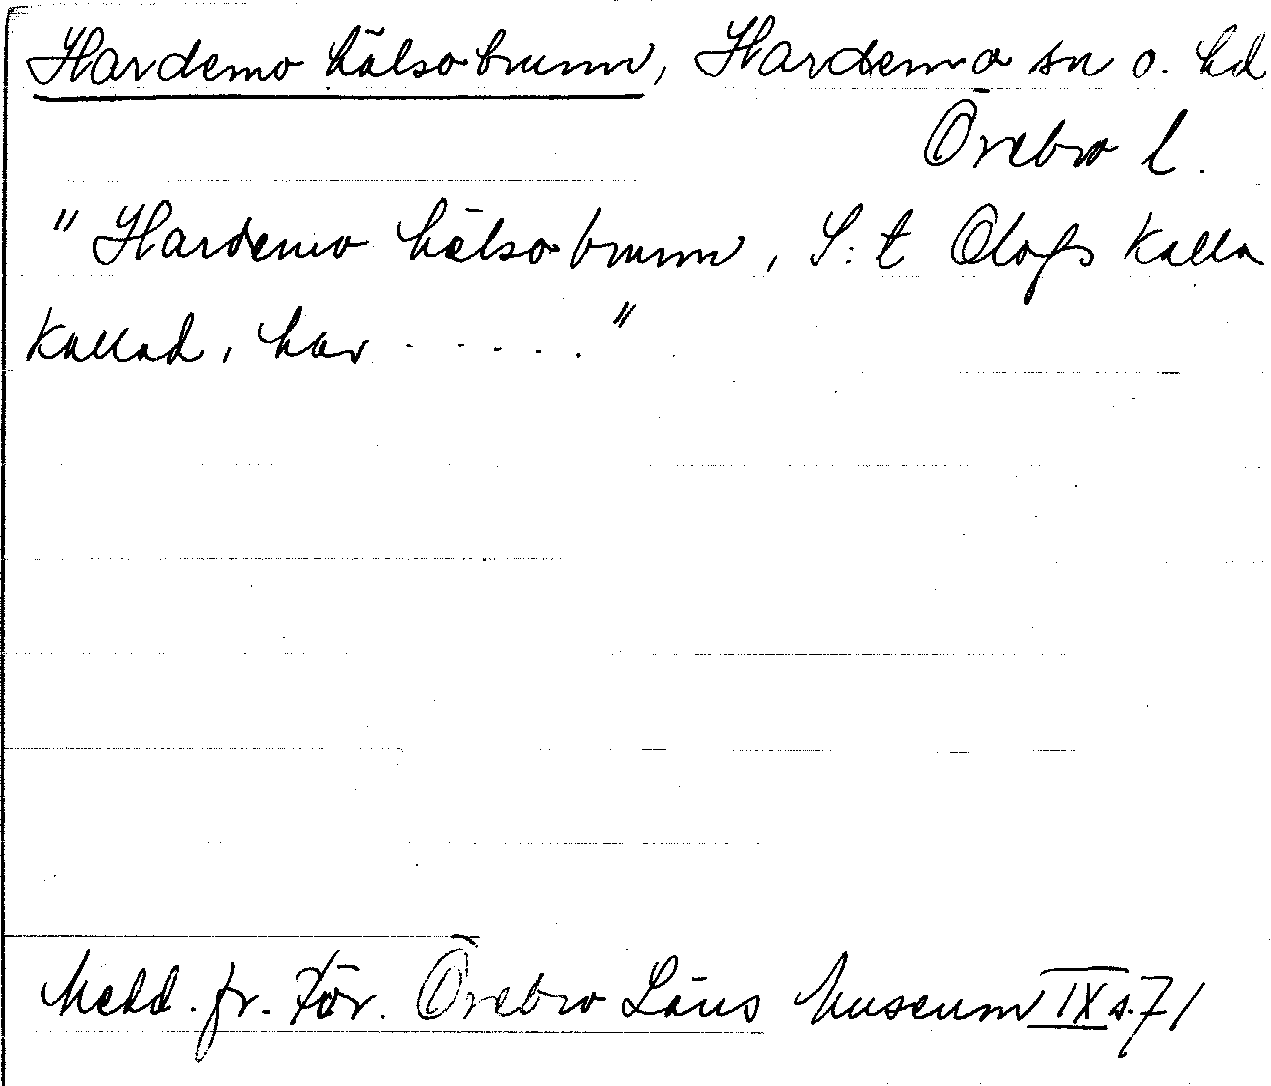 Hardemo hälsobrunn, Hardemo sn o. hd
Örebro l.
"Hardemo hälsobrunn, S:t Olofs Källa
Kallad, har ....."
Medd. fr. För. Örebro Läns Museum IX s. 71